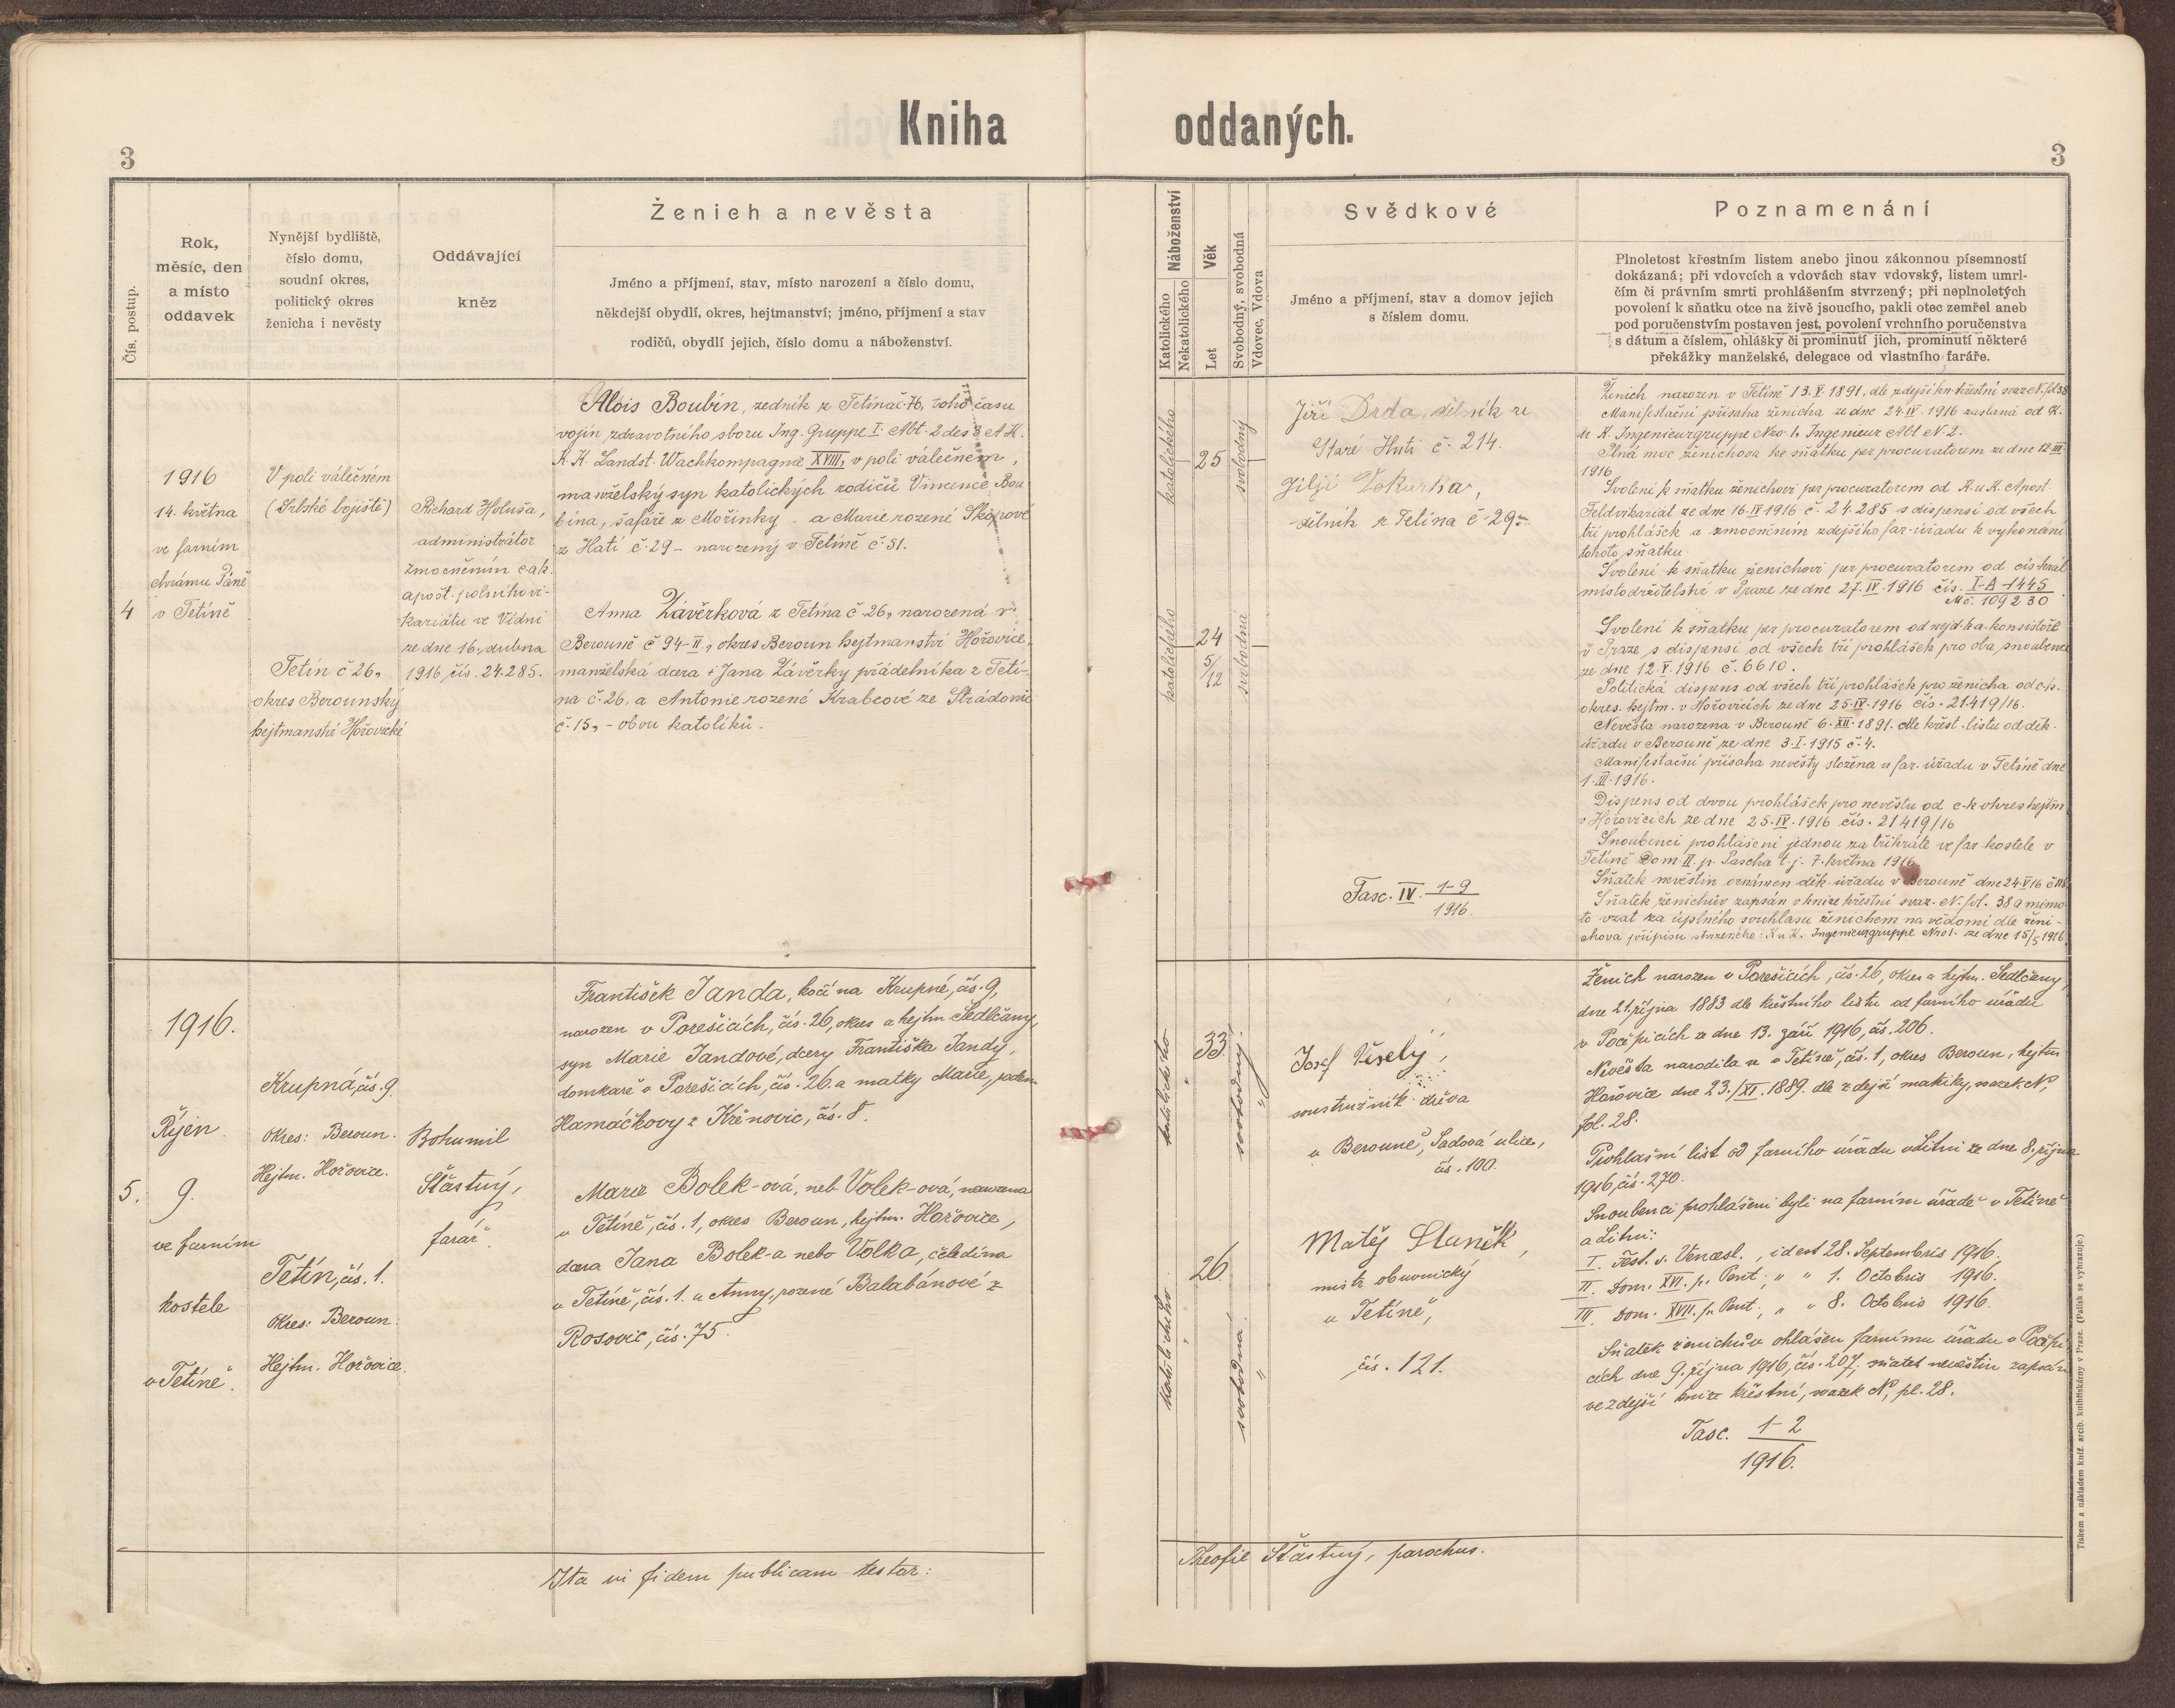 Kniha oddaných.
3
3
Čís. postup.
Rok,
měsíc, den
a místo
oddavek
Nynější bydliště,
číslo domu,
soudní okres,
politický okres
ženicha i nevěsty
Oddávající
kněz
Ženich a nevěsta
Jméno a příjmení, stav, místo narození a číslo domu,
někdejší obydlí, okres, hejtmanství; jméno, příjmení a stav
rodičů, obydlí jejich, číslo domu a náboženství.
Náboženství
Katolického
Nekatolického
Věk
Let
Svobodný, svobodná
Vdovec, Vdova
Svědkové
Jméno a příjmení, stav a domov jejich
s číslem domu.
Poznamenání
Plnoletost křestním listem anebo jinou zákonnou písemností
dokázaná; při vdovcích a vdovách stav vdovský, listem umrl-
čím či právním smrti prohlášením stvrzený; při neplnoletých
povolení k sňatku otce na živě jsoucího, pakli otec zemřel aneb
pod poručenstvím postaven jest, povolení vrchního poručenstva
s dátum a číslem, ohlášky či prominutí jich, prominutí některé
překážky manželské, delegace od vlastního faráře.
4
1916
14. května
ve farním
chrámu Páně
v Tetíně
V poli válečném
(Srbské bojiště)
Tetín č 26,
okres Berounský
hejtmanství Hořovické
Richard Holuša,
administrátor
zmocněním c.a k.
apošt. polního vi-
kariátu ve Vídni
ze dne 16. dubna
1916 čís. 24.285.
Alois Boubín, zedník z Tetína č. 76, toho času
vojín zdravotního sboru Ing. Gruppe I. Abt. 2 des 3 A K.
K. K. Landst. Wachkompagnie XVIII, v poli válečném,
manželský syn katolických rodičů Vincence Bou
bína, šafáře z Mořinky a Marie rozené Skopové
z Hatí č. 29 – narozený v Tetíně č. 51.
Anna Závěrková z Tetína č 26, narozená v
Berouně č 94-II., okres Beroun hejtmanství Hořovice,
manželská dcera + Jana Závěrky přádelníka z Tetí-
na č. 26. a Antonie rozené Krabcové ze Strádonic
č. 15, – obou katolíků.
katolického
25
svobodný
katolického
24
5/12
svobodná
Jiří Drda, dělník ze
Staré Huti č. 214.
Jiljí Vokurka,
dělník z Tetína č. 29.
Fasc. IV. 1–9
1916.
Ženich narozen v Tetíně 13. V. 1891, dle zdejší kn. křestní svaz. N. fol 38
Manifestační přísaha ženicha ze dne 24. IV. 1916 zaslaná od K.
u K. Ingenieurgruppe Nro. 1, Ingenieur Abt N. 2.
Plná moc ženichova ke sňatku per procuratorem ze dne 12 III.
1916
Svolení k sňatku ženichovi per procuratorem od K. u K. Apost.
Feldvikariat ze dne 16. IV 1916 č. 24.285 s dispensí od všech
tří prohlášek a zmocněním zdejšího far. úřadu k vykonání
tohoto sňatku.
Svolení k sňatku ženichovi per procuratorem od cís. král
místodržitelství v Praze ze dne 27. IV. 1916 čís. I-A-1445
M č. 109230
Svolení k sňatku per procuratorem od nejd. k. a. konsistoře
v Praze s dispensí od všech tří prohlášek pro oba snoubence
ze dne 12. V. 1916 č. 6610.
Politická dispens od všech tří prohlášek pro ženicha od c. k.
okres. hejtm. v Hořovicích ze dne 25. IV. 1916 čís. 21419/16.
Nevěsta narozena v Berouně 6. XII. 1891. dle křest. listu od děk.
úřadu v Berouně ze dne 3. I. 1915 č. 4.
Manifestační přísaha nevěsty složena u far. úřadu v Tetíně dne
1. III. 1916.
Dispens od dvou prohlášek pro nevěstu od c. k okres hejtm
v Hořovicích ze dne 25. IV. 1916 čís. 21419/16
Snoubenci prohlášeni jednou za třikráte ve far. kostele v
Tetíně Dom II. p. Pascha t. j. 7. května 1916
Sňatek nevěstin oznámen děk. úřadu v Berouně dne 24. V 16
Sňatek ženichův zapsán v knize křestní svaz. N. fol. 38 a mimo
to vzat za úplného souhlasu ženichem na vědomí dle ženi-
chova přípisu stvrzeného: K. u K. Ingenieurgruppe Nro 1. ze dne 15/5 1916
5.
1916.
Říjen
9.
ve farním
kostele
v Tetíně.
Krupná, čís. 9.
Okres: Beroun.
Hejtm. Hořovice.
Tetín, čís. 1.
Okres: Beroun.
Hejtm. Hořovice.
Bohumil
Šťastný,
farář.
František Janda, kočí na Krupné, čís. 9,
narozen v Porešicích, čís. 26, okres a hejtm Sedlčany,
syn Marie Jandové, dcery Františka Jandy,
domkaře v Porešicích, čís. 26. a matky Marie,
Hamáčkovy z Křenovic, čís. 8.
Marie Bolek-ová, neb Volek-ová, narozena
v Tetíně, čís. 1, okres Beroun, hejtm. Hořovice,
dcera Jana Bolek-a nebo Volka, čeledína
v Tetíně, čís. 1. a Anny, rozené Balabánové z
Rosovic, čís. 75.
katolického
33
svobodný
katolického
26
svobodná
Josef Veselý,
soustružník dřeva
v Berouně, Sadová ulice,
čís. 100.
Matěj Staněk,
mistr obuvnický
v Tetíně,
čís. 121.
Ženich narozen v Porešicích, čís. 26, okres a hejtm. Sedlčany,
dne 21. října 1883 dle křestního listu od farního úřadu
v Počepicích ze dne 13. září 1916, čís. 206.
Nevěsta narodila se v Tetíně, čís. 1, okres Beroun, hejtm
Hořovice dne 23./XI. 1889. dle zdejší matriky, svazek N,
fol. 28.
Prohlašní list od farního úřadu v Litni ze dne 8. října
1916, čís. 270.
Snoubenci prohlášeni byli na farním úřadě v Tetíně
a Litni:
I. Fest. s. Vencesl., id est 28. Septembris 1916,
II. Dom. XVI. p. Pent., " " 1. Octobris 1916.
III. Dom. XVII. p. Pent., " " 8. Octobris 1916.
Sňatek ženichův ohlášen farnímu úřadu v Počepi
cích dne 9. října 1916, čís. 207; sňatek nevěstin zapsán
ve zdejší knize křestní, svazek N, pl. 28.
Fasc. 1–2
1916.
Ita in fidem publicam testor:
Theofil Šťastný, parochus.
Tiskem a nákladem kníž. arcib. knihtiskárny v Praze. (Patisk se vyhrazuje.)